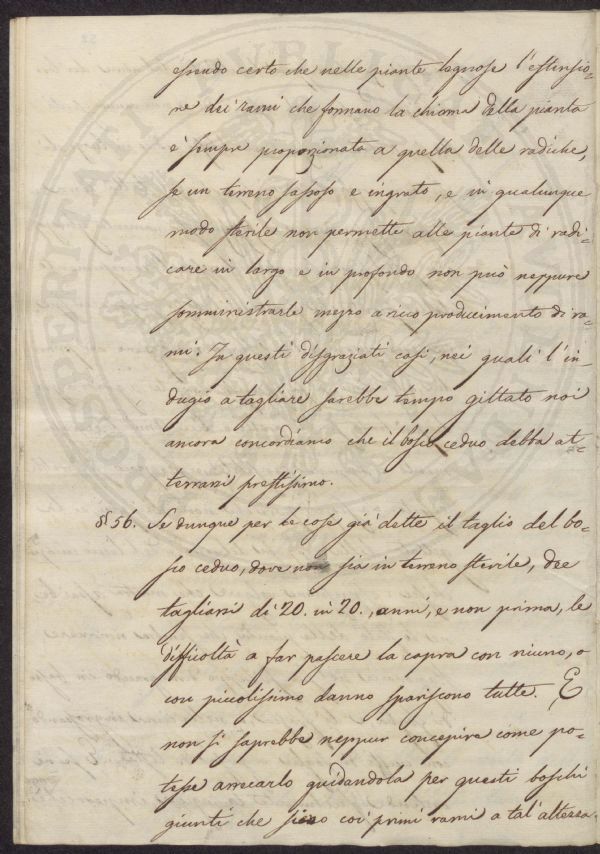 essendo certo che nelle piante legnose l'estensio-
ne dei rami che formano la chioma della pianta
è sempre proporzionata a quella delle radiche,
se un terreno sassoso e ingrato, e in qualunque
modo sterile non permette alle piante di radi-
care in largo e in profondo non può neppure
somministrarle mezzo a ricco producimento di ra-
mi. In questi disgraziati casi, nei quali l'in-
dugio a tagliare sarebbe tempo gittato noi
ancora concordiamo che il bosco ceduo debba at-
terrarsi prestissimo.
§ 56. Se dunque per le cose già dette il taglio del bo-
sco ceduo, dove non sia in terreno sterile, dee
tagliarsi di 20. in 20., anni, e non prima, le
difficoltà a far pascere la capra con niuno, o
con piccolissimo danno spariscono tutte. E
non si saprebbe neppur concepire come po-
tesse arrecarlo guidandola per questi boschi
giunti che sieno coi primi rami a tal'altezza